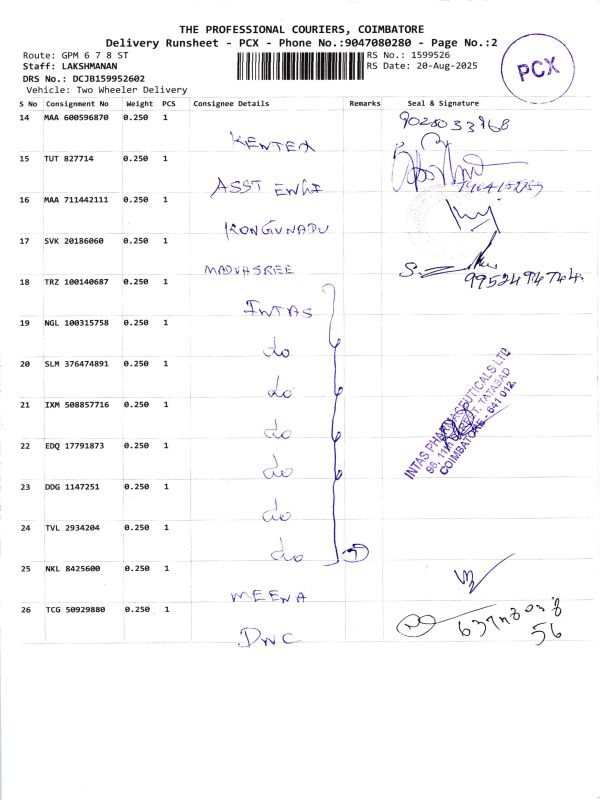 THE PROFESSIONAL COURIERS, COIMBATORE
Delivery Runsheet - PCX - Phone No.:9047080280 - Page No.:2
Route: GPM 6 7 8 ST
RS No.: 1599526
Staff: LAKSHMANAN
RS Date: 20-Aug-2025
DRS No.: DCJB159952602
Vehicle: Two Wheeler Delivery
PCX
S No Consignment No Weight PCS Consignee Details Remarks Seal & Signature
14 MAA 600596870 0.250 1
KENTEX
15 TUT 827714 0.250 1
ASST ENGI
16 MAA 711442111 0.250 1
KONGUNADU
17 SVK 20186060 0.250 1
MADUHSREE
9952494744
18 TRZ 100140687 0.250 1
INTAS
19 NGL 100315758 0.250 1
do
20 SLM 376474891 0.250 1
do
21 IXM 508857716 0.250 1
do
22 EDQ 17791873 0.250 1
do
23 DDG 1147251 0.250 1
do
24 TVL 2934204 0.250 1
do 7
INTAS PHARMACEUTICALS LTD
96, 11th STREET, TATABAD
COIMBATORE - 641 012.
25 NKL 8425600 0.250 1
MEENA
26 TCG 50929880 0.250 1
DNC
56